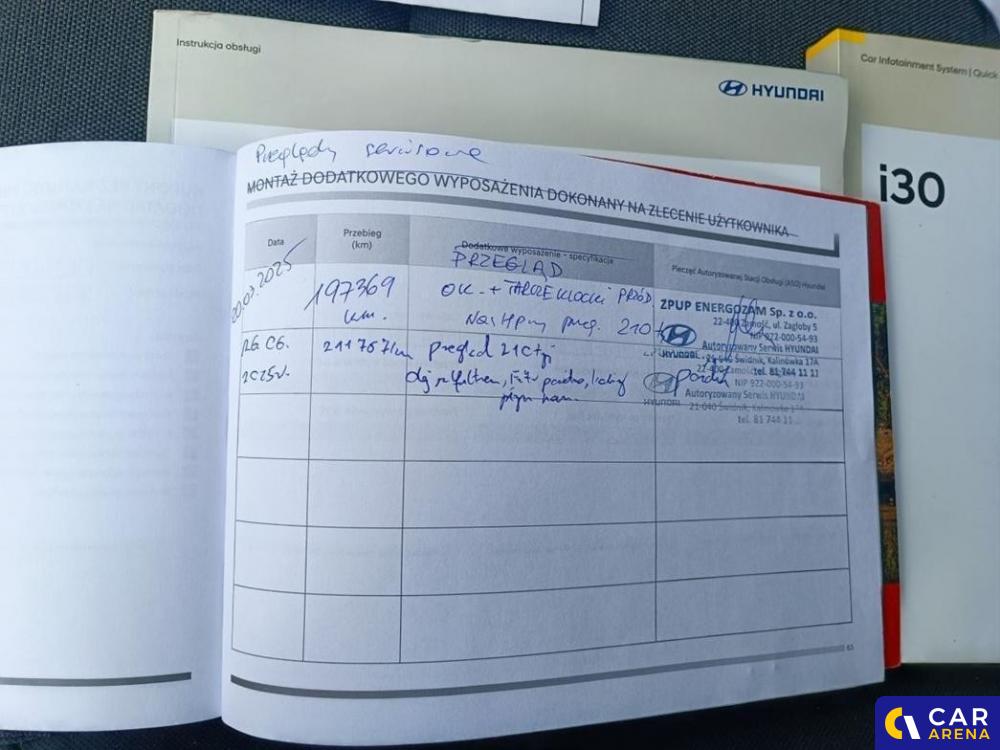 Instrukcja obsługi
HYUNDAI
Car Infotainment System | Quick
i30
Przeglądy serwisowe
MONTAŻ DODATKOWEGO WYPOSAŻENIA DOKONANY NA ZLECENIE UŻYTKOWNIKA
Data
Przebieg
(km)
Dodatkowe wyposażenie - specyfikacja
PRZEGLĄD
Pieczęć Autoryzowanej Stacji Obsługi (ASO) Hyundai
20.03.2025
197369
km.
OK. + TARCZE KLOCKI PRZÓD
Następny przeg. 210
ZPUP ENERGOZAM Sp. z o.o.
22-400 Zamość, ul. Zagłoby 5
NIP 922-000-54-93
Autoryzowany Serwis HYUNDAI
HYUNDAI
21-040 Świdnik, Kalinówka 17A
tel. 81 744 11 11
26.06.
2025r.
211767km
przegląd 210tyś
olej + filtrem,
płyn ham.
22-400 Zamość
NIP 922-000-54-93
Autoryzowany Serwis HYUNDAI
HYUNDAI
21-040 Świdnik, Kalinówka 17A
tel. 81 744 11
63
CAR
ARENA